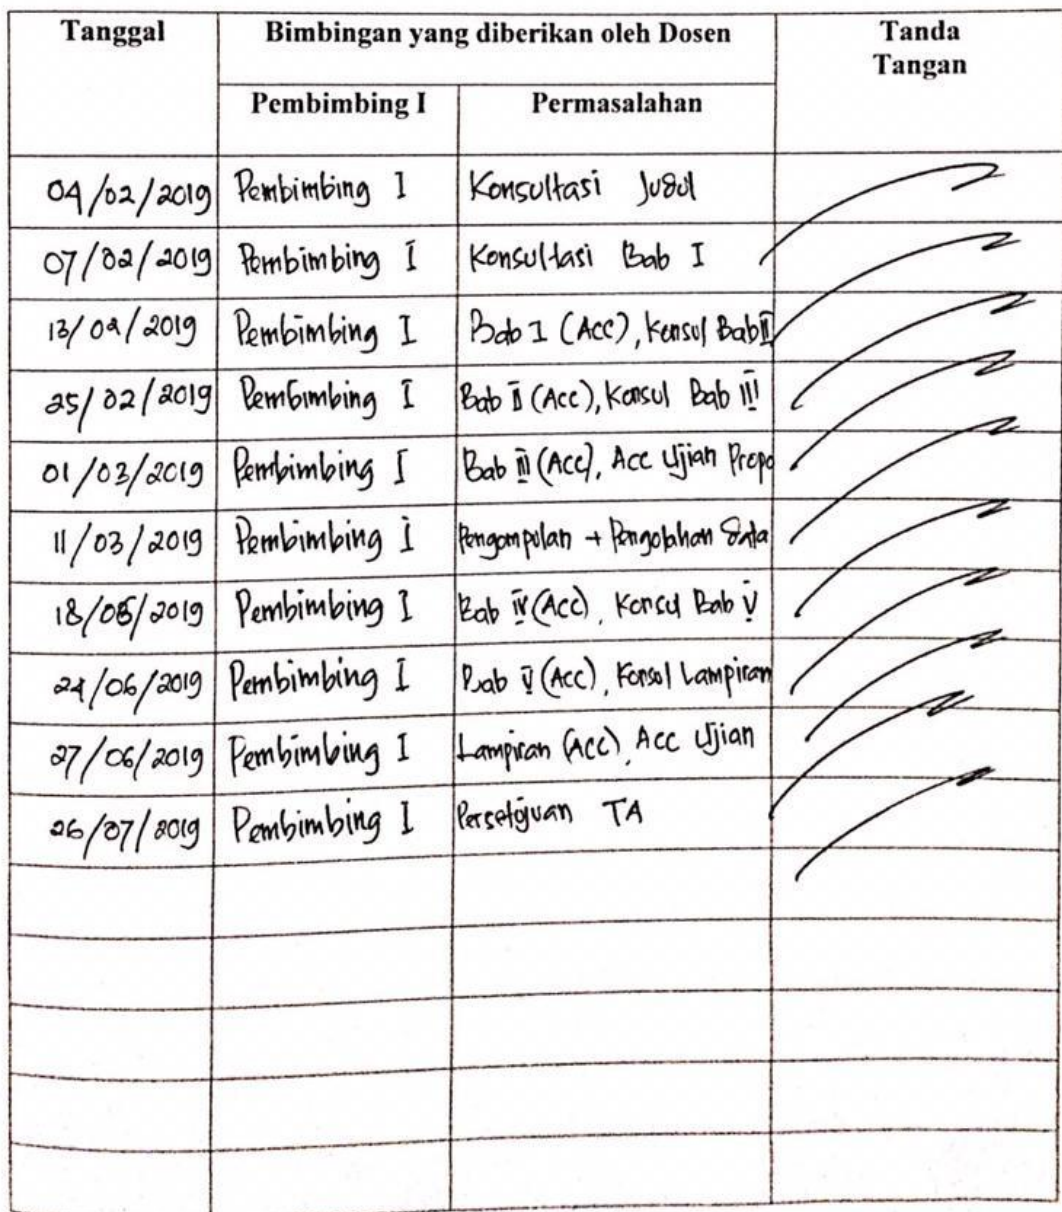 Tanggal Bimbingan yang diberikan oleh Dosen Tanda
Tangan
Pembimbing I Permasalahan
04/02/2019 Pembimbing I Konsultasi Judul
07/02/2019 Pembimbing I Konsultasi Bab I
13/02/2019 Pembimbing I Bab I (Acc), Konsul Bab II
25/02/2019 Pembimbing I Bab II (Acc), Konsul Bab III
01/03/2019 Pembimbing I Bab III (Acc), Acc Ujian Propo
11/03/2019 Pembimbing I Pengumpulan + Pengolahan Data
18/06/2019 Pembimbing I Bab IV (Acc), Konsul Bab V
24/06/2019 Pembimbing I Bab V (Acc), Konsul Lampiran
27/06/2019 Pembimbing I Lampiran (Acc), Acc Ujian
26/07/2019 Pembimbing I Persetujuan TA